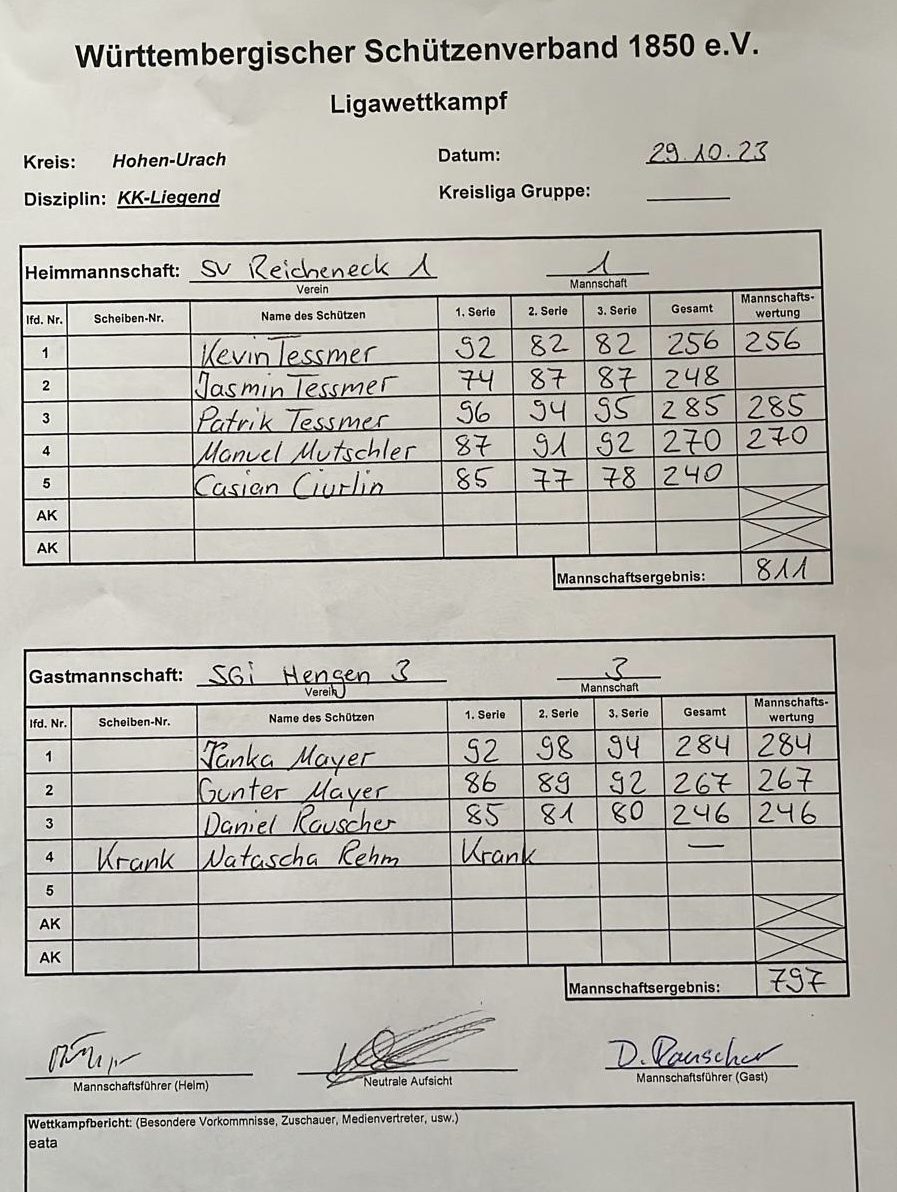 Württembergischer Schützenverband 1850 e.V.
Ligawettkampf
Kreis: Hohen-Urach Datum: 29.10.23
Disziplin: KK-Liegend Kreisliga Gruppe:
Heimmannschaft: SV Reicheneck 1 1
Verein Mannschaft
lfd. Nr. Scheiben-Nr. Name des Schützen 1. Serie 2. Serie 3. Serie Gesamt Mannschafts-
wertung
1 Kevin Tessmer 92 82 82 256 256
2 Jasmin Tessmer 74 87 87 248
3 Patrik Tessmer 96 94 95 285 285
4 Manuel Mutschler 87 91 92 270 270
5 Casian Ciurlin 85 77 78 240
AK
AK
Mannschaftsergebnis: 811
Gastmannschaft: SGi Hengen 3 3
Verein Mannschaft
lfd. Nr. Scheiben-Nr. Name des Schützen 1. Serie 2. Serie 3. Serie Gesamt Mannschafts-
wertung
1 Janka Mayer 92 98 94 284 284
2 Gunter Mayer 86 89 92 267 267
3 Daniel Rauscher 85 81 80 246 246
4 Krank Natascha Rehm Krank —
5
AK
AK
Mannschaftsergebnis: 797
D. Rauscher
Mannschaftsführer (Heim) Neutrale Aufsicht Mannschaftsführer (Gast)
Wettkampfbericht: (Besondere Vorkommnisse, Zuschauer, Medienvertreter, usw.)
eata